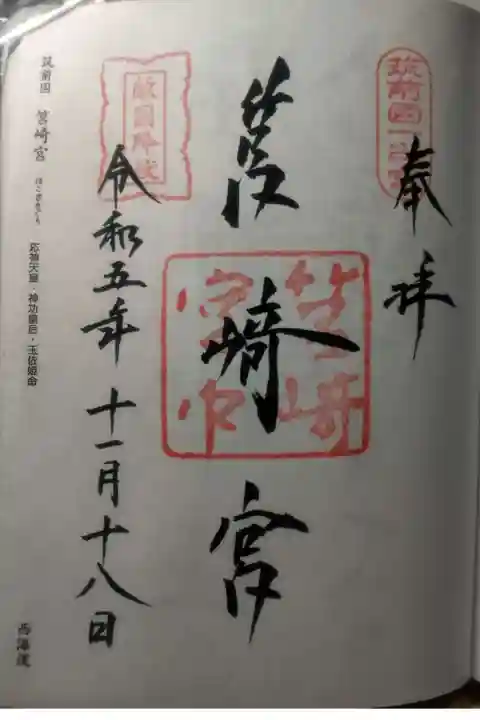 奉拝
筑前国一之宮
筥崎宮
筥崎宮印
敵国降伏
令和五年十一月十八日
筑前国 筥崎宮 はこざきぐう
応神天皇・神功皇后・玉依姫命
西海道